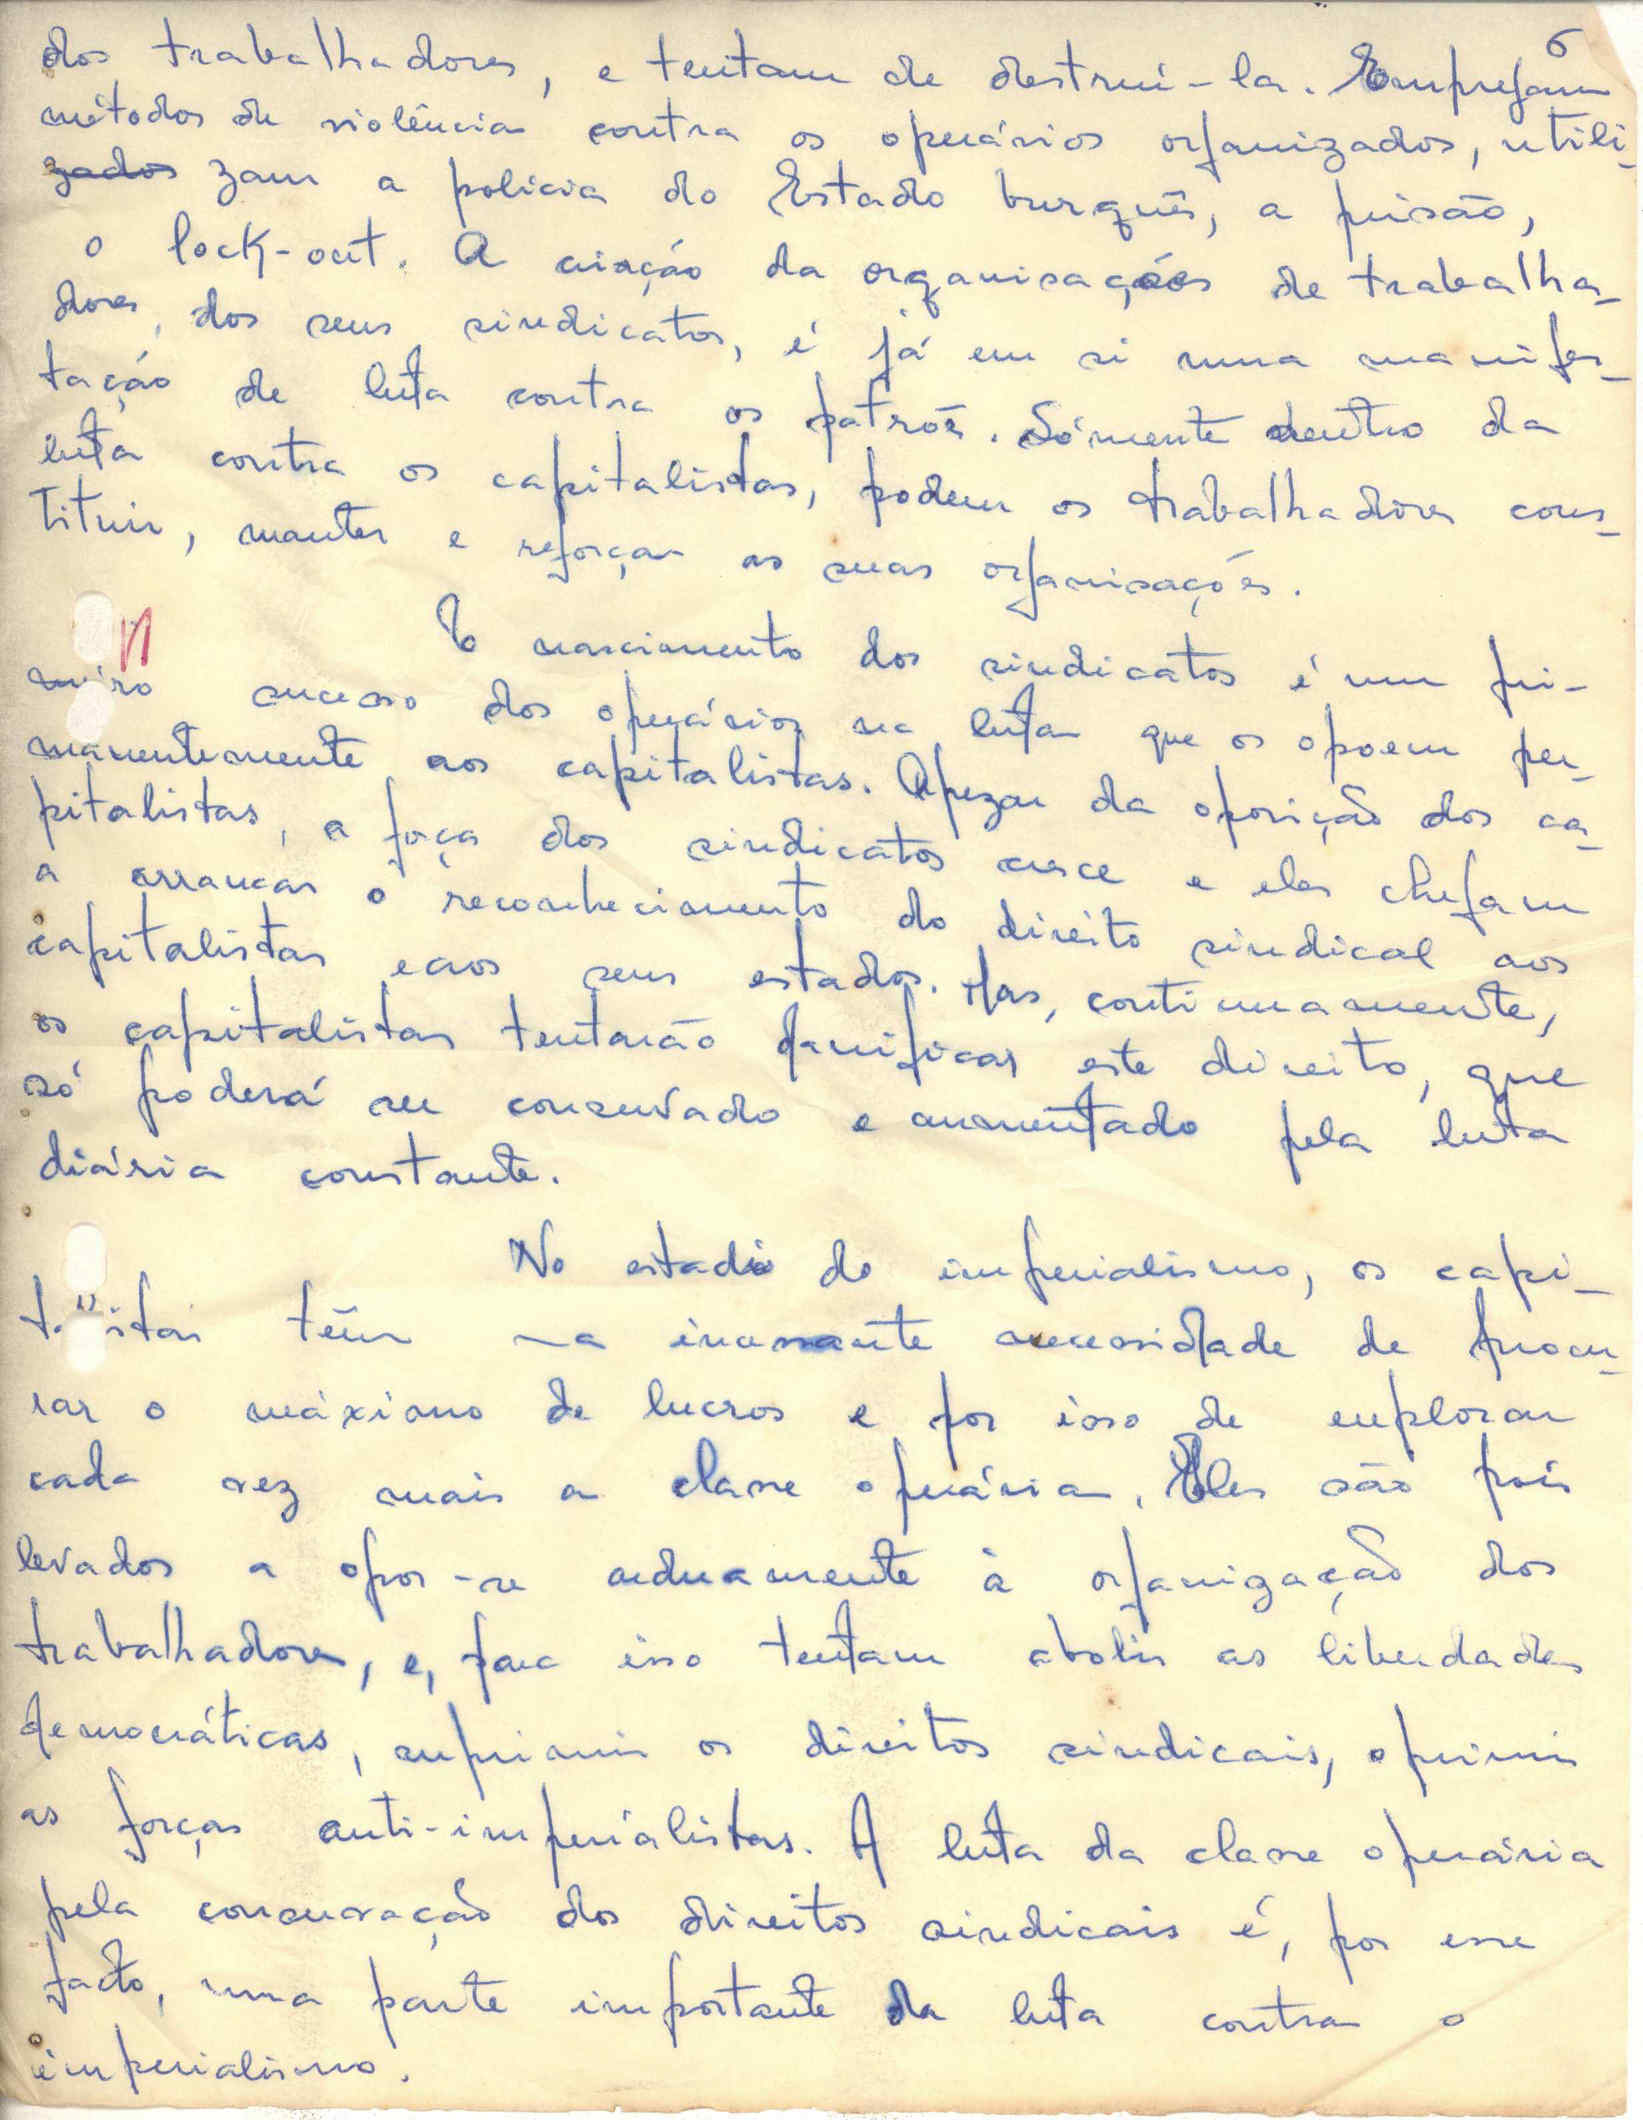 6
dos trabalhadores, e tentam de destrui-la. Empregam
métodos de violência contra os operários organizados, utili-
zados zam a policia do Estado burguês, a prisão,
o lock-out. A criação da organisações de trabalha-
dores, dos seus sindicatos, é já em si uma manifes-
tação de luta contra os patrões. Sómente dentro da
luta contra os capitalistas, podem os trabalhadores cons-
tituir, manter e reforçar as suas organisações.
O nascimento dos sindicatos é um pri-
meiro sucesso dos operários na luta que os opoem per-
manentemente aos capitalistas. Apezar da oposição dos ca-
pitalistas, a força dos sindicatos cresce e eles chegam
a arrancar o reconhecimento do direito sindical aos
capitalistas e aos seus estados. Mas, continuamente,
os capitalistas tentarão danificar este direito, que
só poderá ser conservado e aumentado pela luta
diária constante.
No estadio do imperialismo, os capi-
talistas têm a incessante necessidade de procu-
rar o máximo de lucros e por isso de explorar
cada vez mais a classe operária. Eles são pois
levados a opor-se arduamente à organização dos
trabalhadores, e, para isso tentam abolir as liberdades
democráticas, suprimir os direitos sindicais, oprimir
as forças anti-imperialistas. A luta da classe operária
pela conservação dos direitos sindicais é, por esse
facto, uma parte importante da luta contra o
imperialismo.